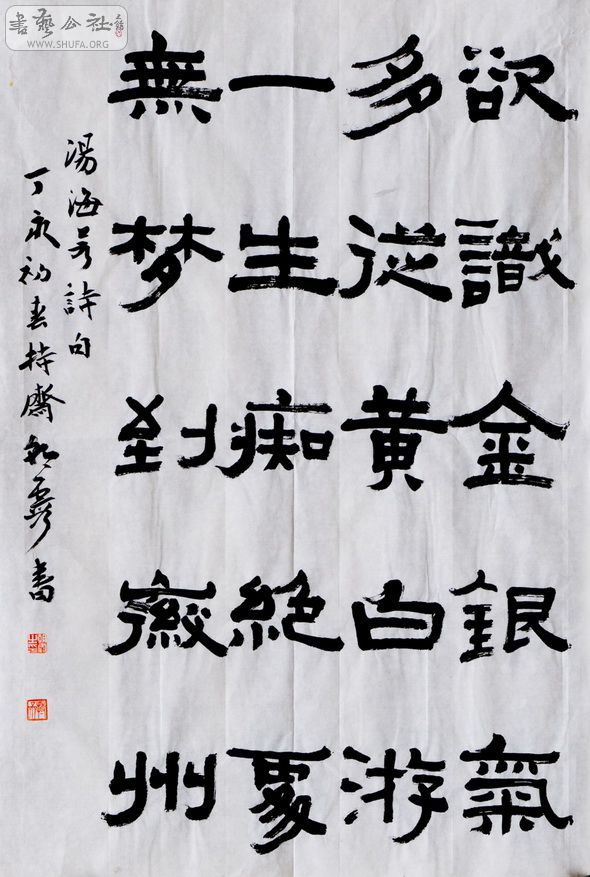 書藝公社
WWW.SHUFA.ORG
欲識金銀氣
多從黄白游
一生痴絶處
無梦到徽州
湯海若詩句
丁亥初春持齋書